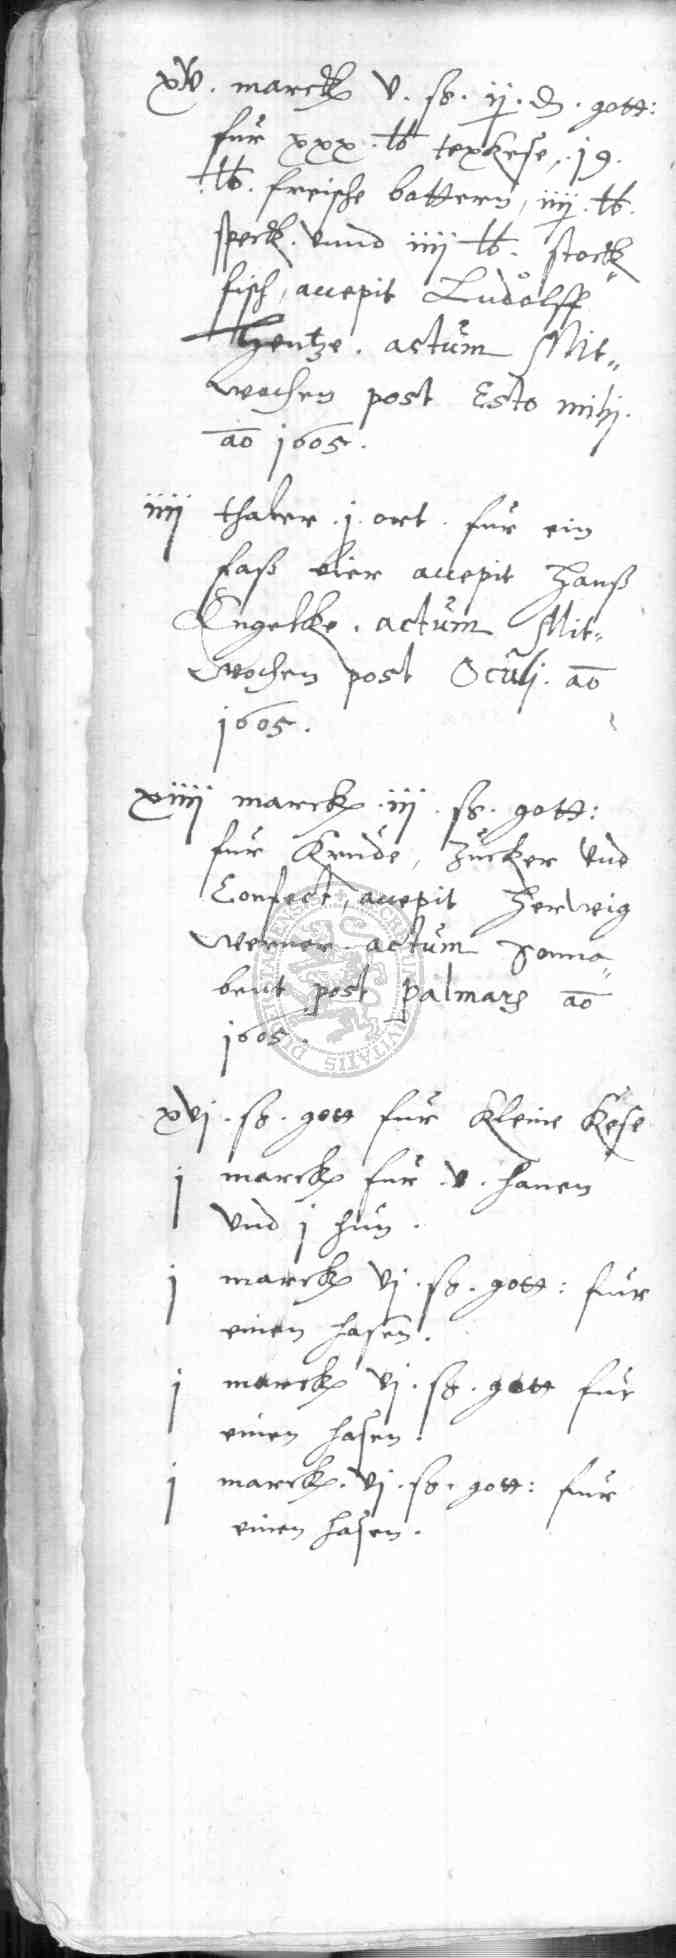 xv. marck v. ß. ij. d. gott:
für xxx. lb texkese, 19.
lb. freische bottern, iiij. lb.
speck. vnnd iiij lb. stock„
fisch, accepit Ludolff
Hentze. actum Mit„
wochen post Esto mihi.
ao 1605.
iiij thaler. j. ort. für ein
faß bier accepit Hanß
Engelke. actum Mit„
wochen post Oculi. ao
1605.
xiiij marck. iij. ß. gott:
für Krude, Zucker vnd
Confect, accepit Herwig
Werner. actum Sonna„
bent post palmarum ao
1605.
xvj. ß. gott für kleine Kese
j marck für. v. hanen
vnd j hun.
j marck vj. ß. gott: für
einen hasen.
j marck vj. ß. gott für
einen hasen.
j marck. vj. ß. gott: für
einen hasen.